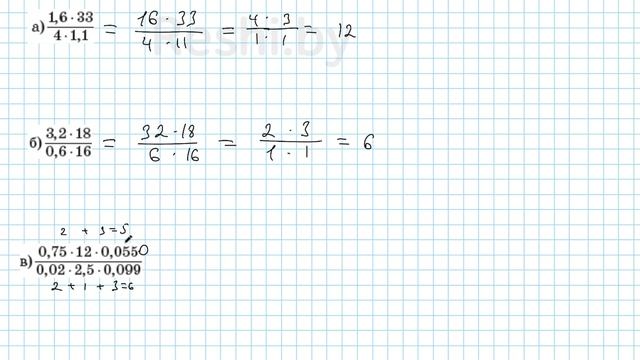 Reshi.by
а) 1,6 · 33 / 4 · 1,1 = 16 · 33 / 4 · 11 = 4 · 3 / 1 · 1 = 12
б) 3,2 · 18 / 0,6 · 16 = 32 · 18 / 6 · 16 = 2 · 3 / 1 · 1 = 6
2 + 3 = 5
в) 0,75 · 12 · 0,0550 / 0,02 · 2,5 · 0,099
2 + 1 + 3 = 6